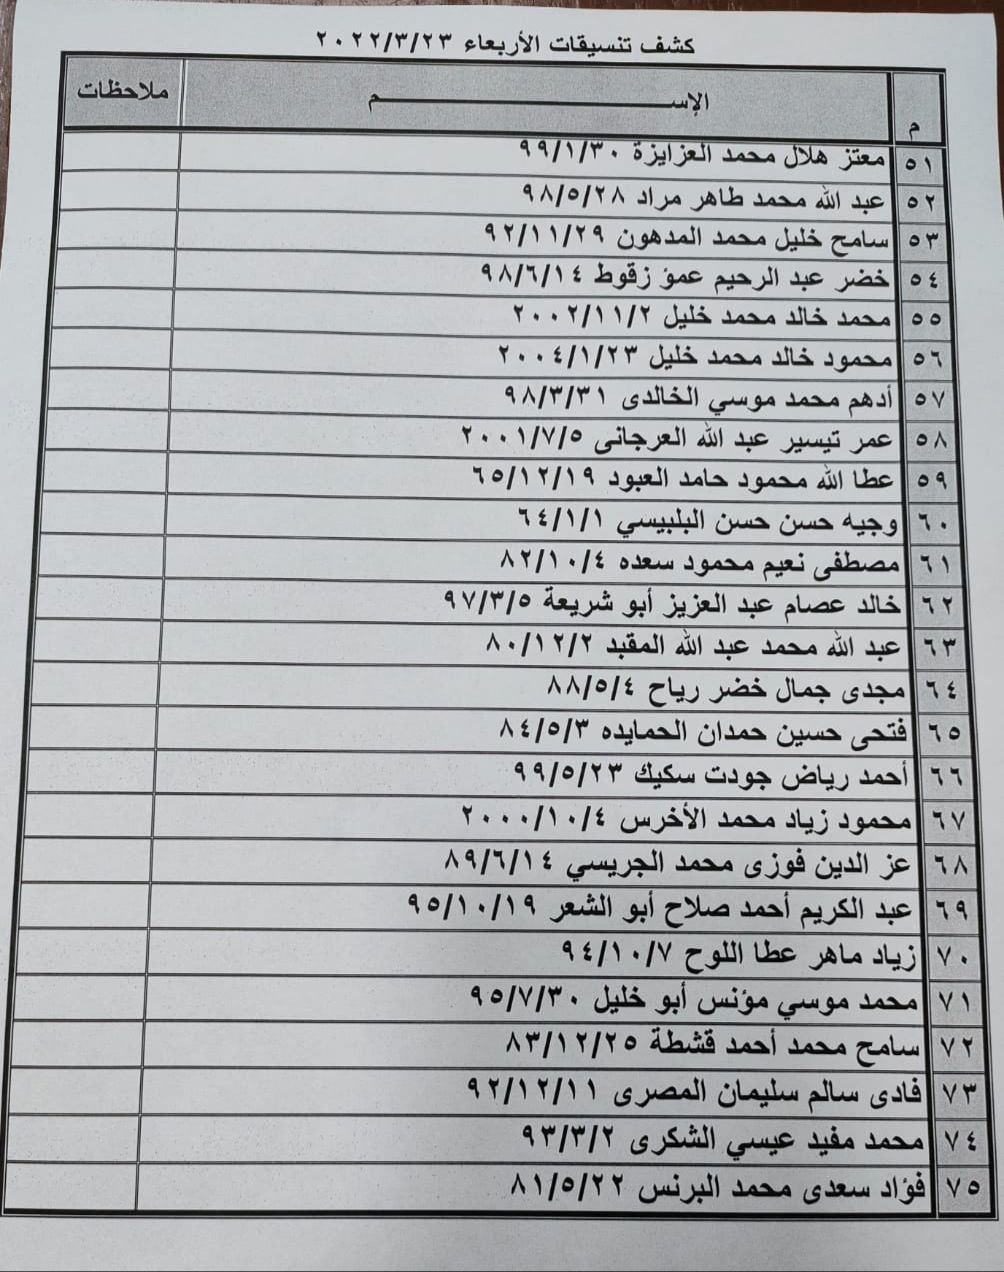 كشف تنسيقات الأربعاء ٢٠٢٢/٣/٢٣
م الإســـــــــــــــم ملاحظات
٥١ معتز هلال محمد العزايزة ٩٩/١/٣٠
٥٢ عبد الله محمد طاهر مراد ٩٨/٥/٢٨
٥٣ سامح خليل محمد المدهون ٩٢/١١/٢٩
٥٤ خضر عبد الرحيم عمؤ زقوط ٩٨/٦/١٤
٥٥ محمد خالد محمد خليل ٢٠٠٢/١١/٢
٥٦ محمود خالد محمد خليل ٢٠٠٤/١/٢٣
٥٧ أدهم محمد موسي الخالدى ٩٨/٣/٣١
٥٨ عمر تيسير عبد الله العرجانى ٢٠٠١/٧/٥
٥٩ عطا الله محمود حامد العبود ٦٥/١٢/١٩
٦٠ وجيه حسن حسن البلبيسي ٦٤/١/١
٦١ مصطفى نعيم محمود سعده ٨٢/١٠/٤
٦٢ خالد عصام عبد العزيز أبو شريعة ٩٧/٣/٥
٦٣ عبد الله محمد عبد الله المقبد ٨٠/١٢/٢
٦٤ مجدى جمال خضر رياح ٨٨/٥/٤
٦٥ فتحى حسين حمدان الحمايده ٨٤/٥/٣
٦٦ أحمد رياض جودت سكيك ٩٩/٥/٢٣
٦٧ محمود زياد محمد الأخرس ٢٠٠٠/١٠/٤
٦٨ عز الدين فوزى محمد الجريسي ٨٩/٦/١٤
٦٩ عبد الكريم أحمد صلاح أبو الشعر ٩٥/١٠/١٩
٧٠ زياد ماهر عطا اللوح ٩٤/١٠/٧
٧١ محمد موسي مؤنس أبو خليل ٩٥/٧/٣٠
٧٢ سامح محمد أحمد قشطة ٨٣/١٢/٢٥
٧٣ فادى سالم سليمان المصرى ٩٢/١٢/١١
٧٤ محمد مفيد عيسي الشكرى ٩٣/٣/٢
٧٥ فؤاد سعدى محمد البرنس ٨١/٥/٢٢